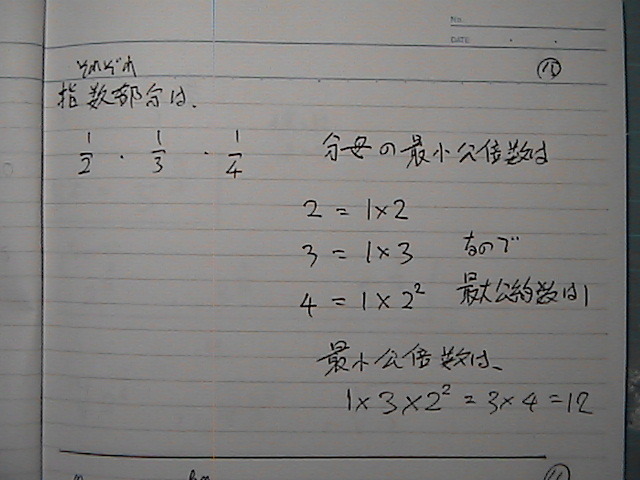 No.
DATE
それぞれ
⑩
指数部分は、
1/2 . 1/3 . 1/4
分母の最小公倍数は
2 = 1×2
3 = 1×3 なので
4 = 1×2² 最大公約数は1
最小公倍数は、
1×3×2² = 3×4 = 12
⑪